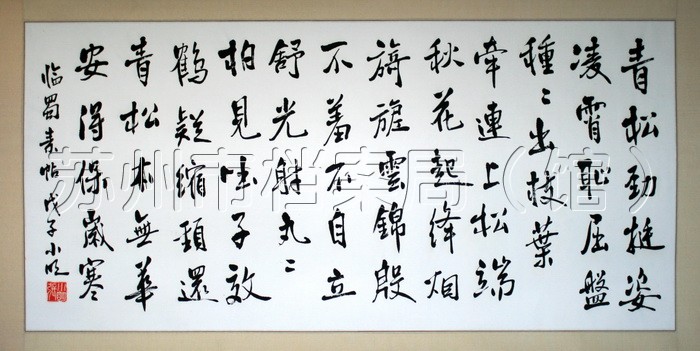 青松勁挺姿
凌霄恥屈盤
種〻出枝葉
牽連上松端
秋花起絳烟
旖旎雲錦殷
不羞不自立
舒光射丸〻
柏見吐子效
鶴疑縮頸還
青松本無華
安得保歲寒
临蜀素帖戊子小
苏州市档案局（馆）